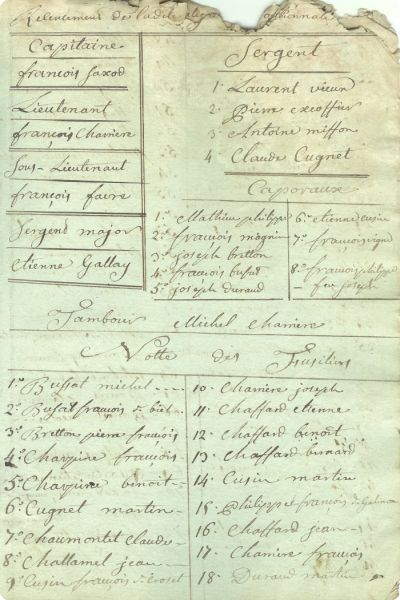 Capitaine
françois Saxod
Lieutenant
françois Charriere
Sous-Lieutenant
françois favre
Sergend major
etienne Gallay
Sergent
1 Laurent
2 Pierre excoffier
3 Antoine miffon
4 Claude Cugnet
Caporaux
1° Mathieu philippe
2° françois magnin
3° joseph bretton
4° françois bussat
5° joseph durand
6° etienne cusin
7° françois
8° françois philippe
feu joseph
Tambour Michel Charriere
Notte des Fusiliers
1° Bussat michel
2° Bussat françois
3° Bretton pierre françois
4° Charriere françois
5° Charriere benoit
6° Cugnet martin
7° Chaumontet Claude
8° Challamel jean
9° Cusin françois
10. Charriere joseph
11. Chaffard etienne
12 Chaffard benoit
13. Chaffard bernard
14 Cusin martin
15 Philippe françois
16 Chaffard jean
17. Charriere françois
18. Durand martin